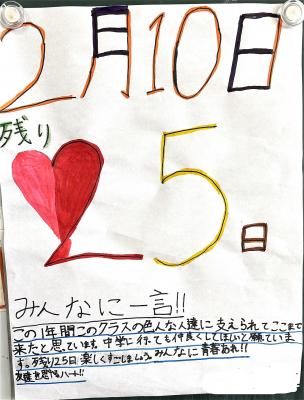 2月10日
残り
25日
みんなに一言!!
この1年間このクラスの色んな人達に支えられてここまで
来たと思っています。中学に行っても仲良くしてほしいと願っていま
す。残り25日楽しくすごしましょう。みんなに青春あれ!!
友達を思うハート!!